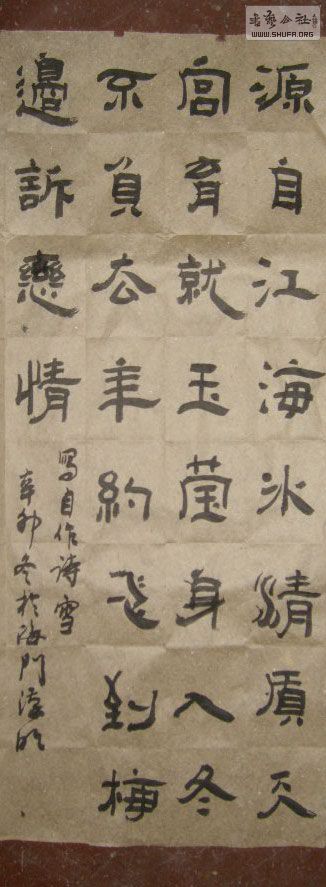 书艺公社
WWW.SHUFA.ORG
源自江海冰精質天
宫育就玉莹身入冬
不負去年約飛到梅
邊訴戀情
写自作诗雪
辛卯冬於海門